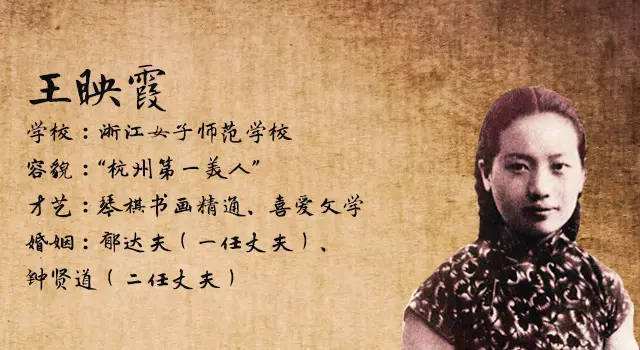 王映霞
学校：浙江女子师范学校
容貌：“杭州第一美人”
才艺：琴棋书画精通、喜爱文学
婚姻：郁达夫（一任丈夫）、
钟贤道（二任丈夫）